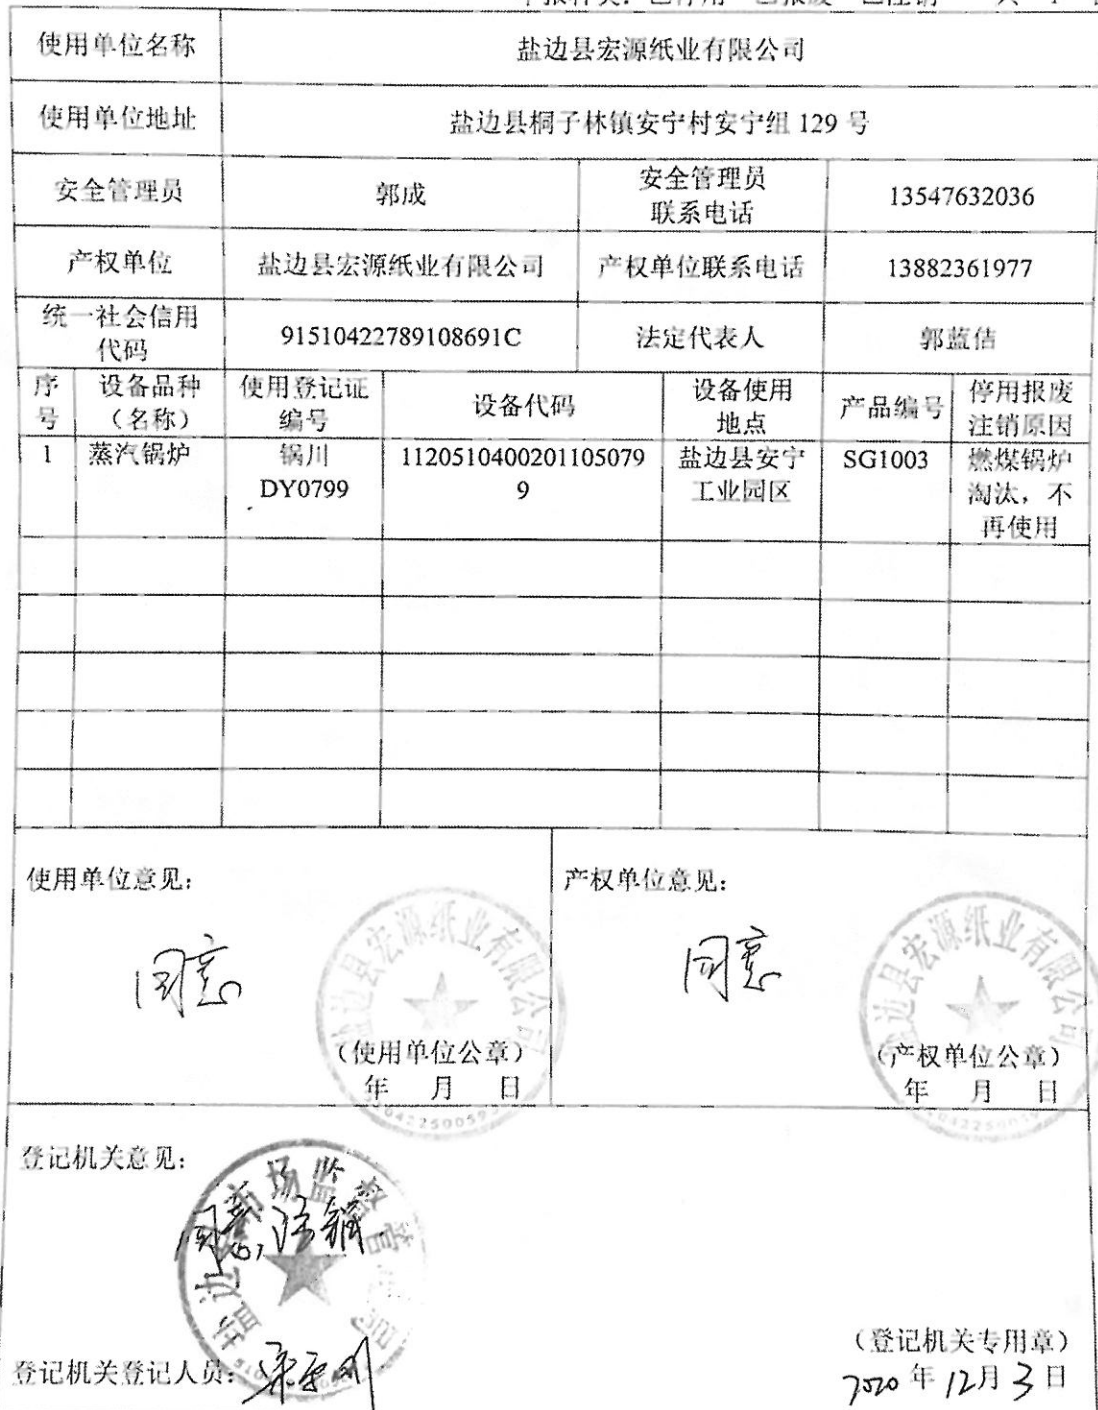 使用单位名称 盐边县宏源纸业有限公司
使用单位地址 盐边县桐子林镇安宁村安宁组 129 号
安全管理员 郭成 安全管理员 联系电话 13547632036
产权单位 盐边县宏源纸业有限公司 产权单位联系电话 13882361977
统一社会信用代码 91510422789108691C 法定代表人 郭蓝佶
序号 设备品种（名称） 使用登记证编号 设备代码 设备使用地点 产品编号 停用报废注销原因
1 蒸汽锅炉 锅川 DY0799 11205104002011050799 盐边县安宁工业园区 SG1003 燃煤锅炉淘汰，不再使用
使用单位意见： 产权单位意见：
盐边县宏源纸业有限公司 盐边县宏源纸业有限公司
同意 同意
（使用单位公章） （产权单位公章）
年 月 日 年 月 日
登记机关意见：
同意注销
（登记机关专用章）
登记机关登记人员：
2020 年 12 月 3 日